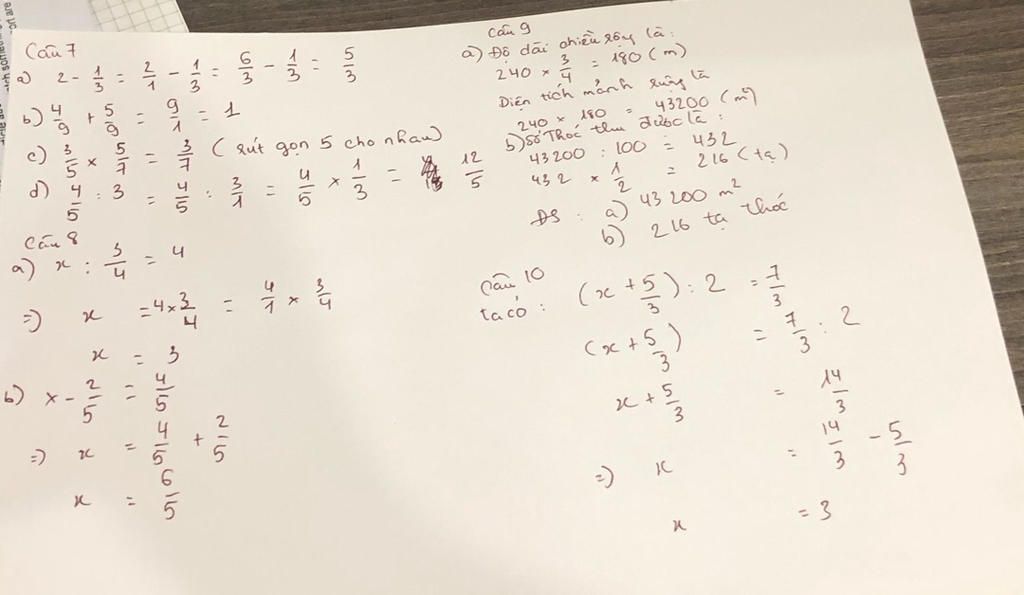 Câu 7
a) 2 - 1/3 = 2/1 - 1/3 = 6/3 - 1/3 = 5/3
b) 4/9 + 5/9 = 9/1 = 1
c) 3/5 × 5/7 = 3/7 (rút gọn 5 cho nhau)
d) 4/5 : 3 = 4/5 : 3/1 = 4/5 × 1/3 = 12/5
Câu 8
a) x : 3/4 = 4
=> x = 4 × 3/4 = 4/1 × 3/4
x = 3
b) x - 2/5 = 4/5
=> x = 4/5 + 2/5
x = 6/5
Câu 9
a) Độ dài chiều rộng là:
240 × 3/4 = 180 (m)
Diện tích mảnh ruộng là
240 × 180 = 43200 (m²)
b) Số thóc thu được là:
43200 : 100 = 432
432 × 1/2 = 216 (tạ)
ĐS : a) 43200 m²
b) 216 tạ thóc
Câu 10
ta có : (x + 5/3) : 2 = 7/3
(x + 5/3) = 7/3 : 2
x + 5/3 = 14/3
=> x = 14/3 - 5/3
x = 3